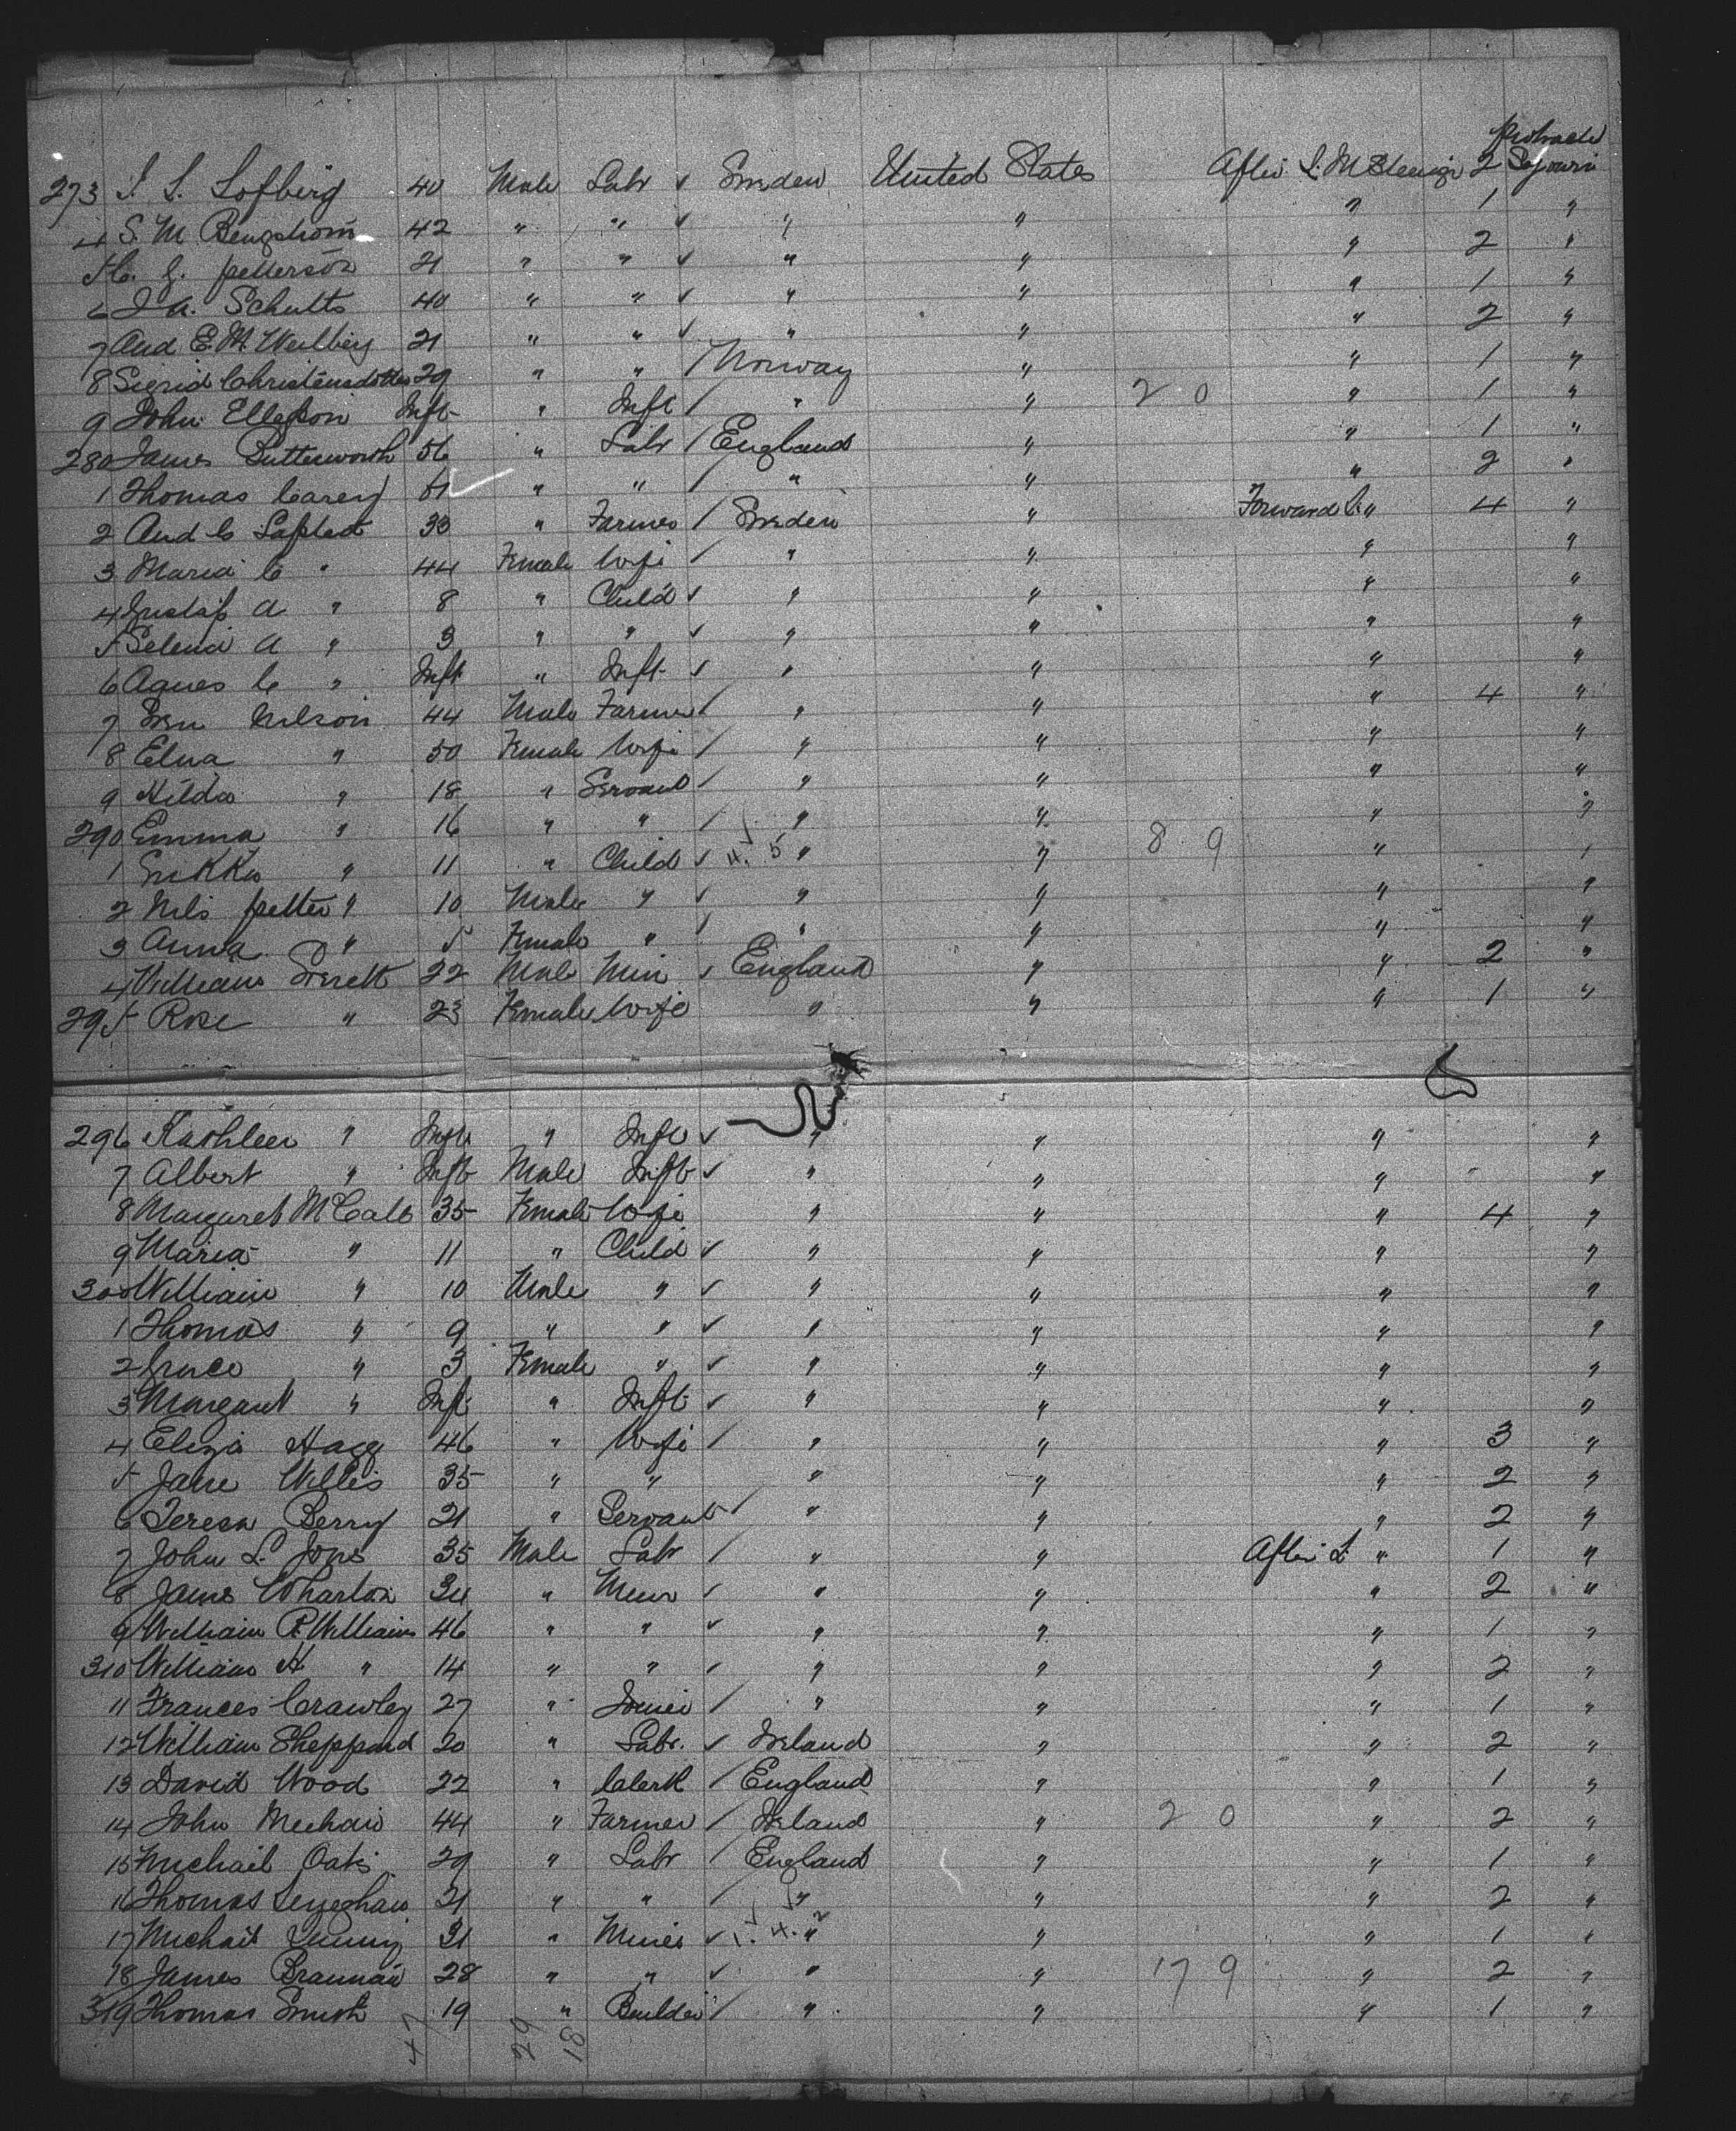 Protracted
273 J. L. Lofberg 40 Male Labr ✓ Sweden United States After S. M Steerage 2 Sojourn
4 S. M Bengstrom 42 " " ✓ " " " 1 "
5 C. J. Petterson 21 " " ✓ " " " 2 "
6 J A. Schults 40 " " ✓ " " " 1 "
7 And E. M. Weilberg 21 " " ✓ " " " 2 "
8 Sigrid Christensdotter 29 " " / Norway " " 1 "
9 John Ellefson Inft " Inft / " " 2 0 " 1 "
280 James Butterworth 56 " Labr / England " " 1 "
1 Thomas Carey 61 " " / " " " 2 "
2 And C 33 " Farmer / Sweden " Forward S. " 4 "
3 Maria C " 44 Female Wife / " " " "
4 Gustaf A " 8 " Child ✓ " " " "
5 Selma A " 3 " " ✓ " " " "
6 Agnes C " Inft " Inft ✓ " " " "
7 Sven Nilson 44 Male Farmer / " " " 4 "
8 Elna " 50 Female Wife / " " " "
9 Hilda " 18 " Servant / " " " "
290 Emma " 16 " " / " " " "
1 " 11 " Child ✓ 4. 5 " " 8 9 " "
2 Nils Petter " 10 Male " ✓ " " " "
3 Anna " 5 Female " / " " " "
4 William 22 Male Min ✓ England " " 2 "
295 Rose " 23 Female Wife " " " 1 "
296 Kathleen " Inft " Inft ✓ " " " "
7 Albert " Inft Male Inft ✓ " " " "
8 Margaret McCall 35 Female Wife " " " 4 "
9 Maria " 11 " Child ✓ " " " "
300 William " 10 Male " ✓ " " " "
1 Thomas " 9 " " ✓ " " " "
2 Grace " 3 Female " ✓ " " " "
3 Margaret " Inft " Inft ✓ " " " "
4 Eliza Hagg 46 " Wife / " " " 3 "
5 Jane Willis 35 " " " " " 2 "
6 Teresa Berry 21 " Servant / " " " 2 "
7 John L. Jones 35 Male Labr / " " After S. " 1 "
8 James Wharton 34 " Miner / " " " 2 "
9 William R. Williams 46 " " ✓ " " " 1 "
310 William H " 14 " " ✓ " " " 2 "
11 Frances Crawley 27 " Joiner / " " " 1 "
12 William Sheppard 20 " Labr. ✓ Ireland " " 2 "
13 David Wood 22 " Clerk / England " " 1 "
14 John Meehan 44 " Farmer / Ireland " 2 0 " 2 "
15 Michail Oats 29 " Labr / England " " 1 "
16 Thomas 21 " " / " " " 2 "
17 Michail 31 " Miner ✓ 1. 4. 2 " " " 1 "
18 James Brannan 28 " " ✓ " " 17 9 " 2 "
319 Thomas Smith 19 " Builder / " " " 1 "
47 29 18